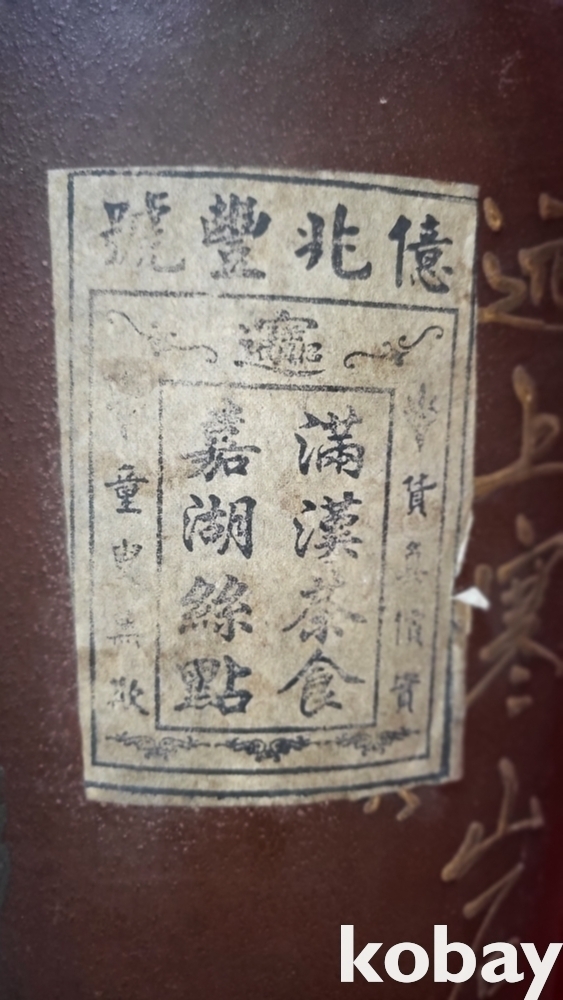 億兆豐號
貨真價實
滿漢茶食
嘉湖絲點
童叟無欺
上寒山
kobay